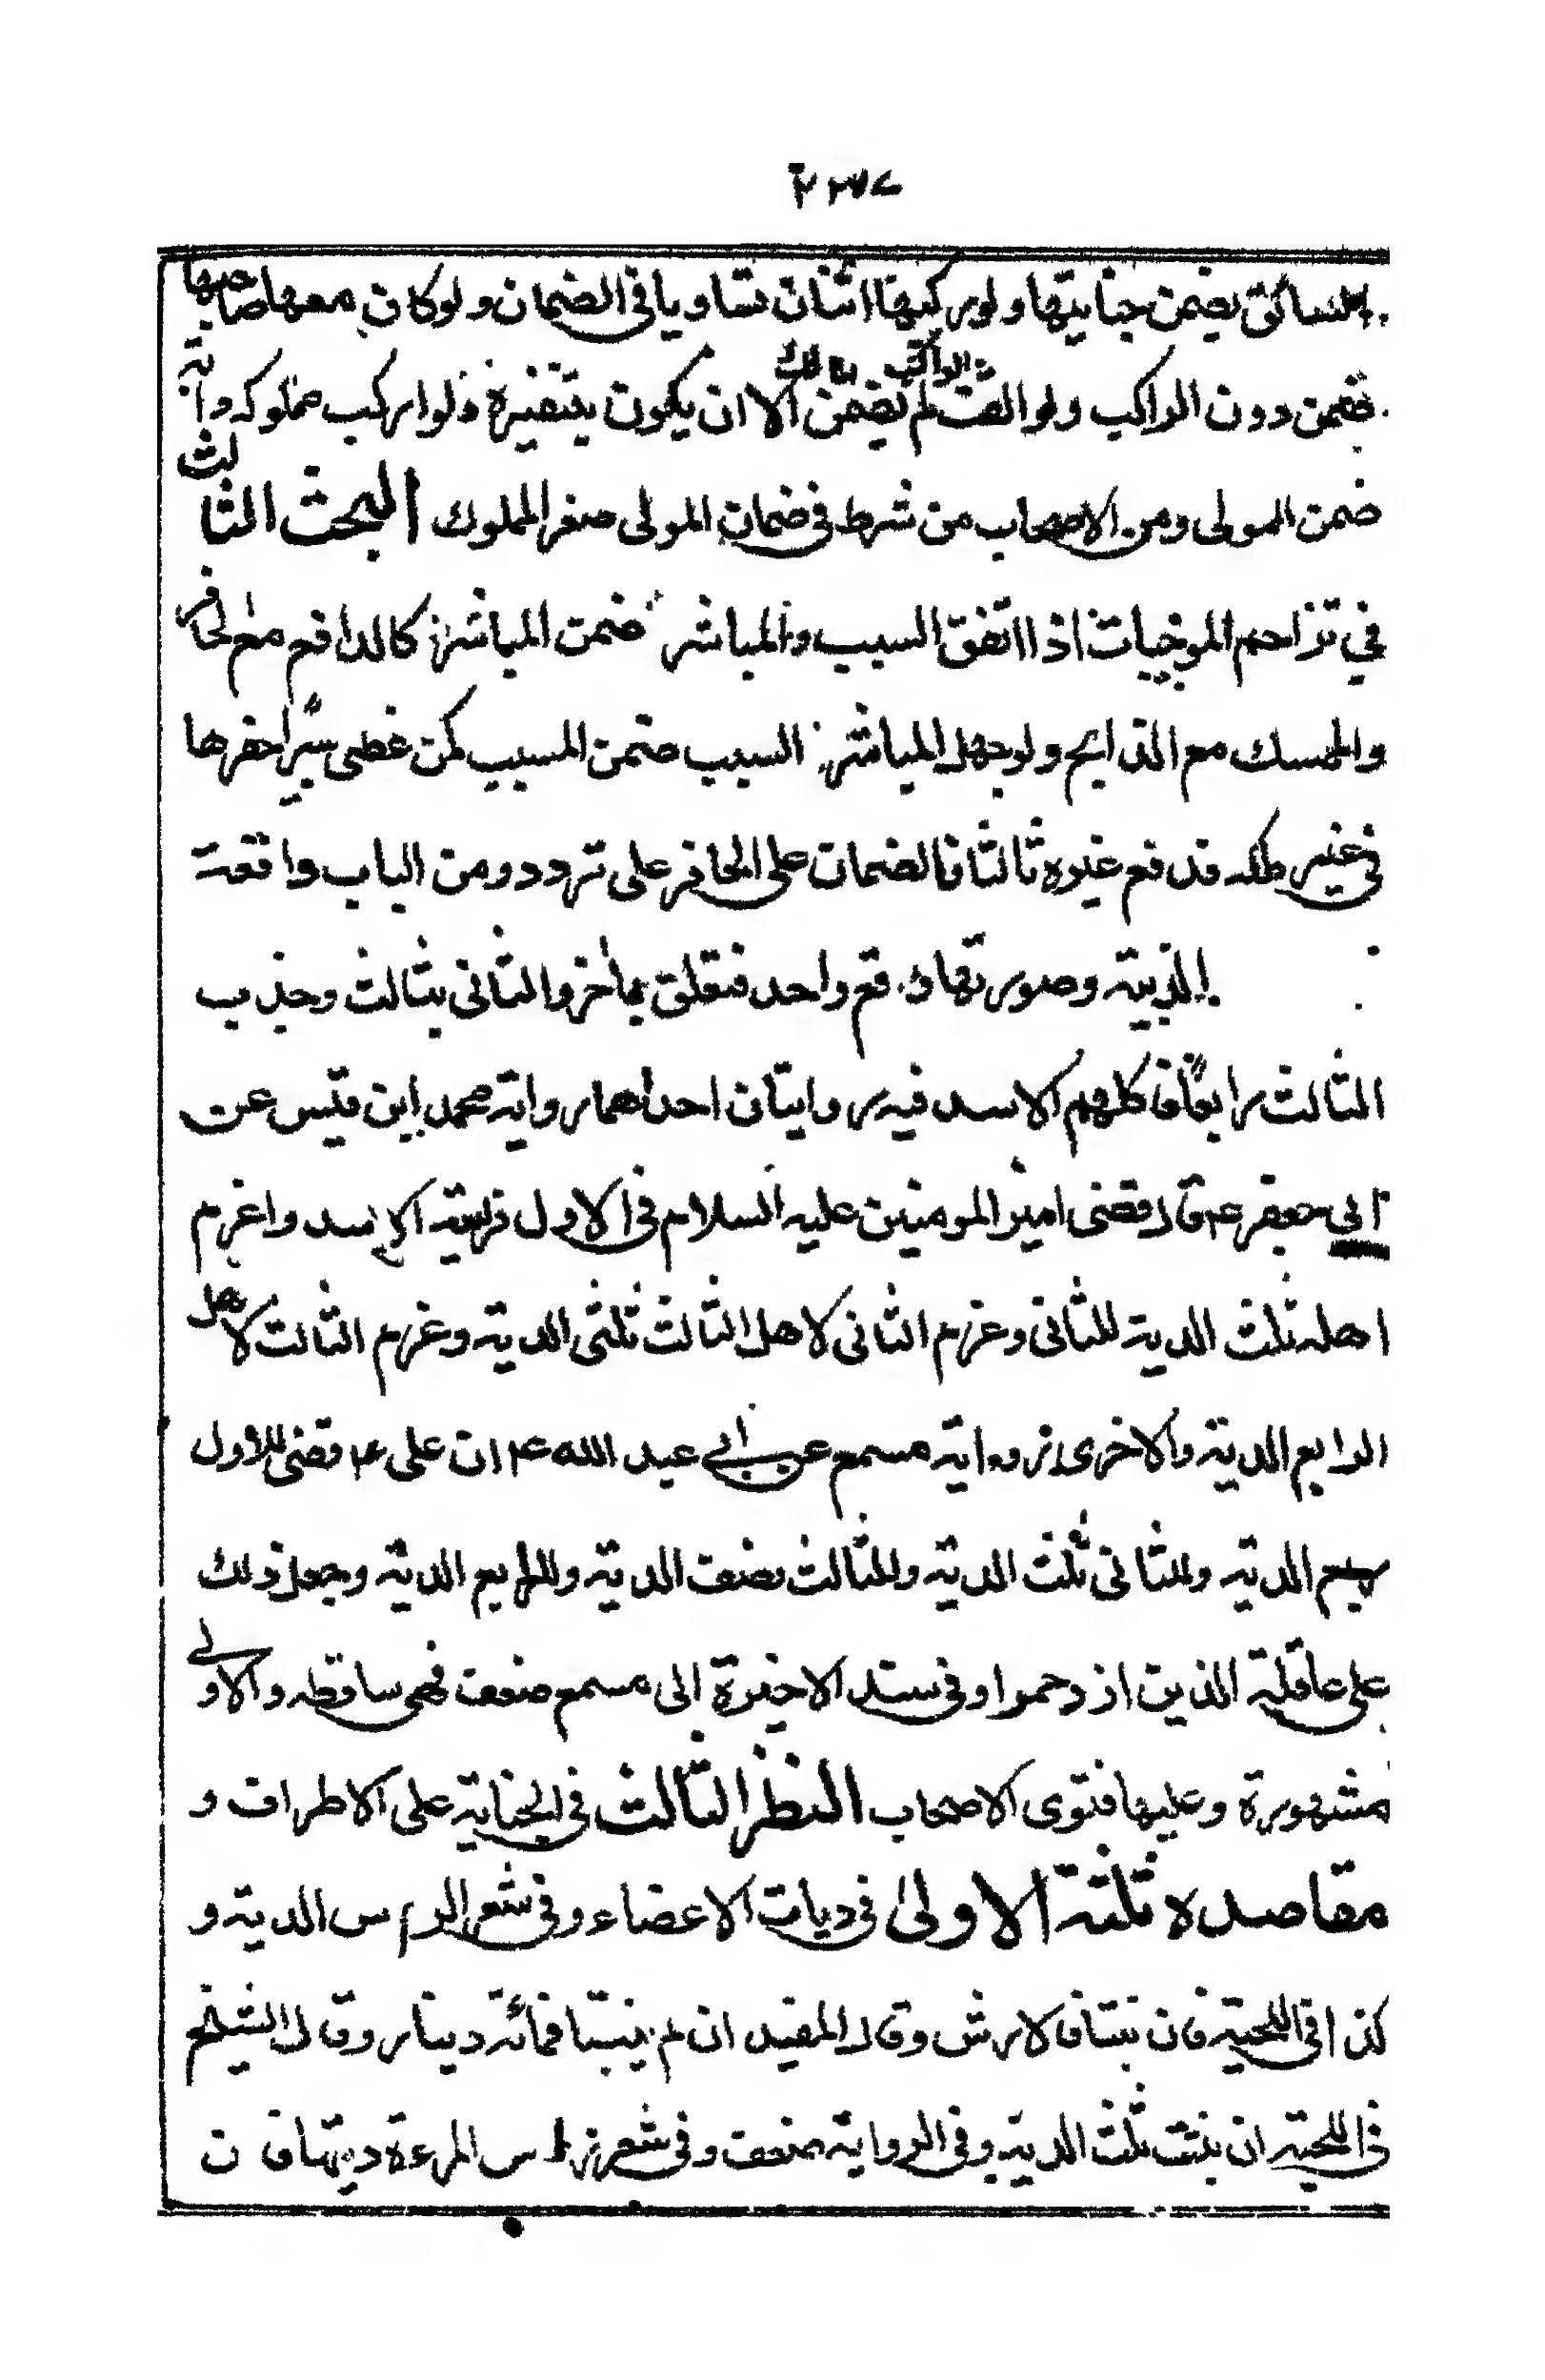 السائق يضمن جنايتها ولو ركبها اثنان تساويا في الضمان ولو كان معها صاحبها
ضمن دون الراكب ولو القت الراكب لم يضمن المالك الا ان يكون بتنفيره ولو اركب مملوكه دابته
ضمن المولى ومن الاصحاب من شرط في ضمان المولى صغر المملوك البحث الثالث
في تزاحم الموجبات اذا اتفق السبب والمباشر ضمن المباشر كالدافع مع الحافر
والممسك مع الذابح ولو جهل المباشر السبب ضمن المسبب كمن غطى بيرًا حفرها
في غير ملكه فدفع غيره ثالثا فالضمان على الحافر على تردد ومن الباب واقعة
الزبية وصورتها وقع واحد فتعلق بآخر والثاني بثالث وجذب
الثالث رابعًا فاكلهم الاسد فيه روايتان احداهما رواية محمد ابن قيس عن
ابي جعفر ع قال قضى امير المومنين عليه السلام في الاول فريسة الاسد واغرم
اهله ثلث الدية للثاني وغرم الثاني لاهل الثالث ثلثى الدية وغرم الثالث لاهل
الرابع الدية والاخرى رواية مسمع عن ابي عبد الله ع ان على ع قضى للاول
ربع الدية وللثاني ثلث الدية وللثالث نصف الدية وللرابع الدية وجعل ذلك
على عاقلة الذين ازدحموا وفي سند الاخيرة الى مسمع ضعف فهي ساقطه والاولى
مشهورة وعليها فتوى الاصحاب النظر الثالث في الجناية على الاطراف و
مقاصده ثلثة الاولى في ديات الاعضاء وفي شعر الراس الدية و
كذا في اللحية فان نبتا فالارش وقال المفيد ان لم ينبتا فمائة دينار وقال الشيخ
في اللحية ان نبتت ثلث الدية وفي الرواية ضعف وفي شعر راس المرءة ديتها فان